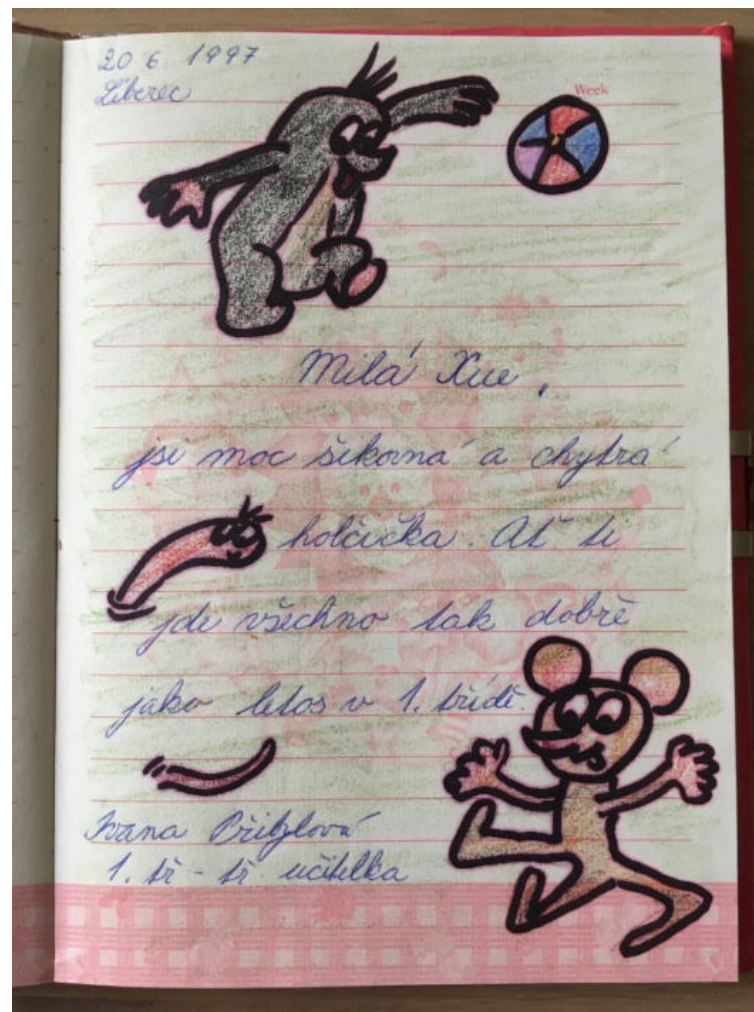 20 6. 1997
Liberec
Week
Milá Xue,
jsi moc šikovná a chytrá
holčička. Ať ti
jde všechno tak dobře
jako letos v 1. třídě.
Ivana Přibylová
1. tř - tř. učitelka